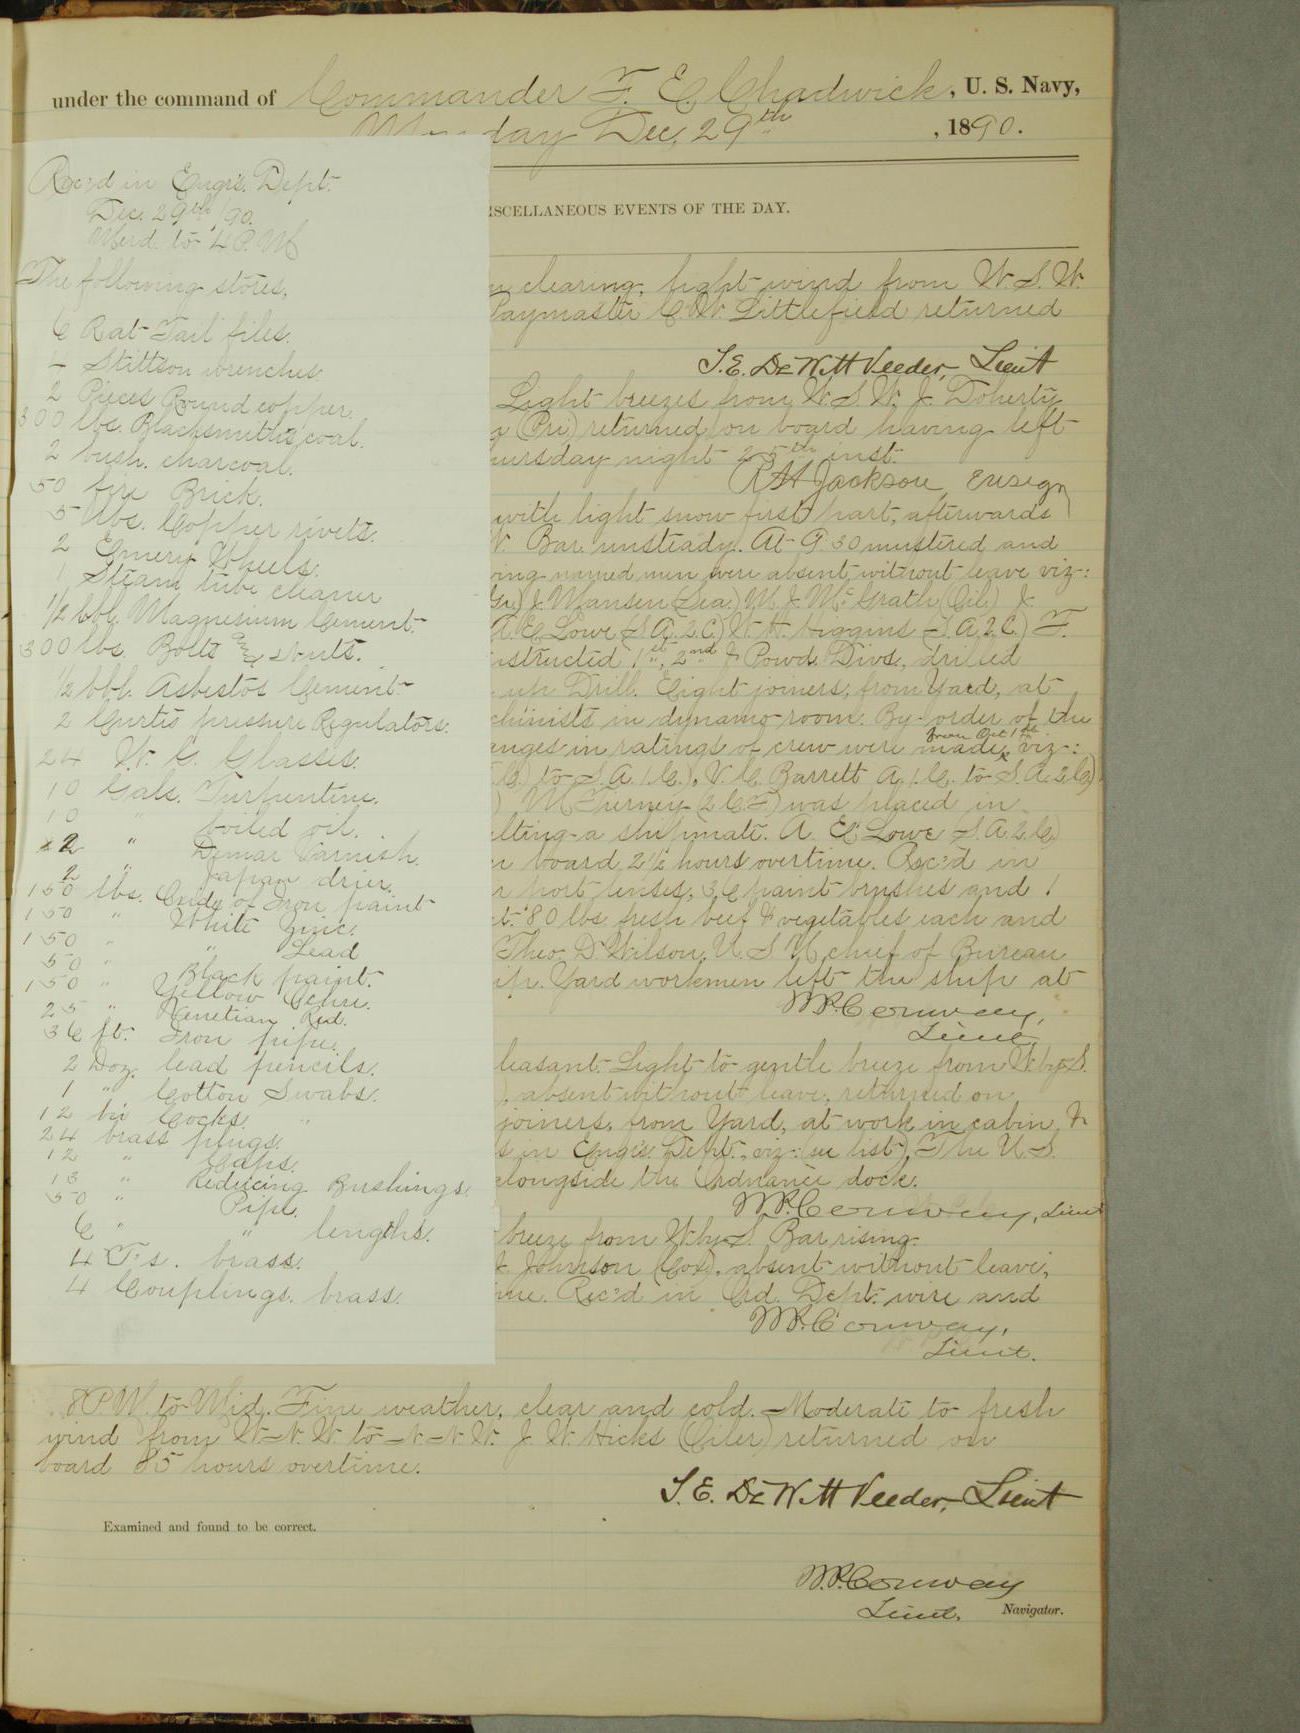 under the command of Commander F. E. Chadwick, U. S. Navy,
Monday Dec. 29th, 1890.
Rec'd in Engr's. Dept.
Dec. 29th/90.
Merd. to 4 P.M
The following stores,
6 Rat Tail files.
Stillson wrenches
2 Pieces Round copper.
300 lbs. Blacksmiths' coal.
2 bush. charcoal.
50 fire Brick.
5 lbs. Copper rivets.
2 Emery Wheels.
1 Steam tube cleaner
1/2 bbl. Magnesium Cement.
300 lbs Bolts and Nuts.
1/2 bbl. Asbestos Cement
2 Curtis pressure Regulators.
24 W. G. Glasses.
10 Gals. Turpentine.
10 " boiled oil.
2 " Damar Varnish.
2 " Japan drier.
150 lbs. Oxide of Iron paint
150 " White Zinc.
150 " " Lead
50 " Black paint.
150 " Yellow Ochre.
25 " Venetian Red.
36 ft. Iron pipe.
2 Doz. lead pencils.
1 " Cotton Swabs.
12 Cocks. "
24 brass plugs.
12 " Caps.
13 " Reducing Bushings.
50 " Pipe.
6 " " lengths.
4 T's. brass.
4 Couplings. brass.
ISCELLANEOUS EVENTS OF THE DAY.
clearing, light wind from W. S. W.
Paymaster C. W. Littlefield returned
S. E. DeWitt Veeder, Lieut
Light breezes from W. S. W. J. Doherty
(Pri) returned on board having left
ursday night 25th inst.
R H Jackson, Ensign
with light snow first part, afterwards
W. Bar. unsteady. At 9.30 mustered and
ing named men were absent without leave viz-:
J. Hansen (Sea.) M. J. McGrath (Oil.) J.
A. E. Lowe (S.A. 2.C.) W. H. Higgins (S.A. 2.C.) F.
nstructed 1st, 2nd & Powd. Divs., drilled
up Drill. Eight joiners, from Yard, at
chinists in dynamo room. By order of the
anges in ratings of crew were made, from Oct 1st viz-:
to S.A. 1.C.), V. C. Barrett A. 1.C. to S.A. 2.C.)
M. Turney (2 C.F.) was placed in
lting a shipmate. A. E. Lowe S.A. 2.C.)
board 2 1/2 hours overtime. Rec'd in
port lenses, 36 paint brushes and 1
t. 80 lbs fresh beef & vegetables each and
Theo. D. Wilson, U. S. N. chief of Bureau
ip. Yard workmen left the ship at
W.P. Conway,
Lieut.
leasant. Light to gentle breeze from W. by S.
absent without leave, returned on
joiners, from Yard, at work in cabin, &
s in Engr's. Dept., viz-: (see list), The U. S.
alongside the Ordnance dock.
W.P. Conway, Lieut
breeze from W. by S. Bar rising.
Johnson (Cox), absent without leave,
me. Rec'd in Ord. Dept. wire and
W.P. Conway,
Lieut.
8 P.M. to Mid. Fine weather, clear and cold. Moderate to fresh
wind from W-N-W to N-N-W. J. W. Hicks (Oiler) returned on
board 85 hours overtime.
S. E. DeWitt Veeder, Lieut
Examined and found to be correct.
W.P. Conway
Lieut. Navigator.